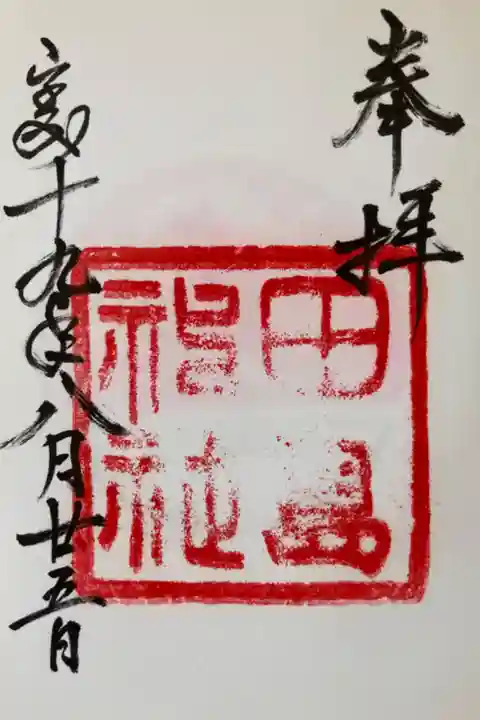 奉拝
田島
神社
平成十九年八月廿五日